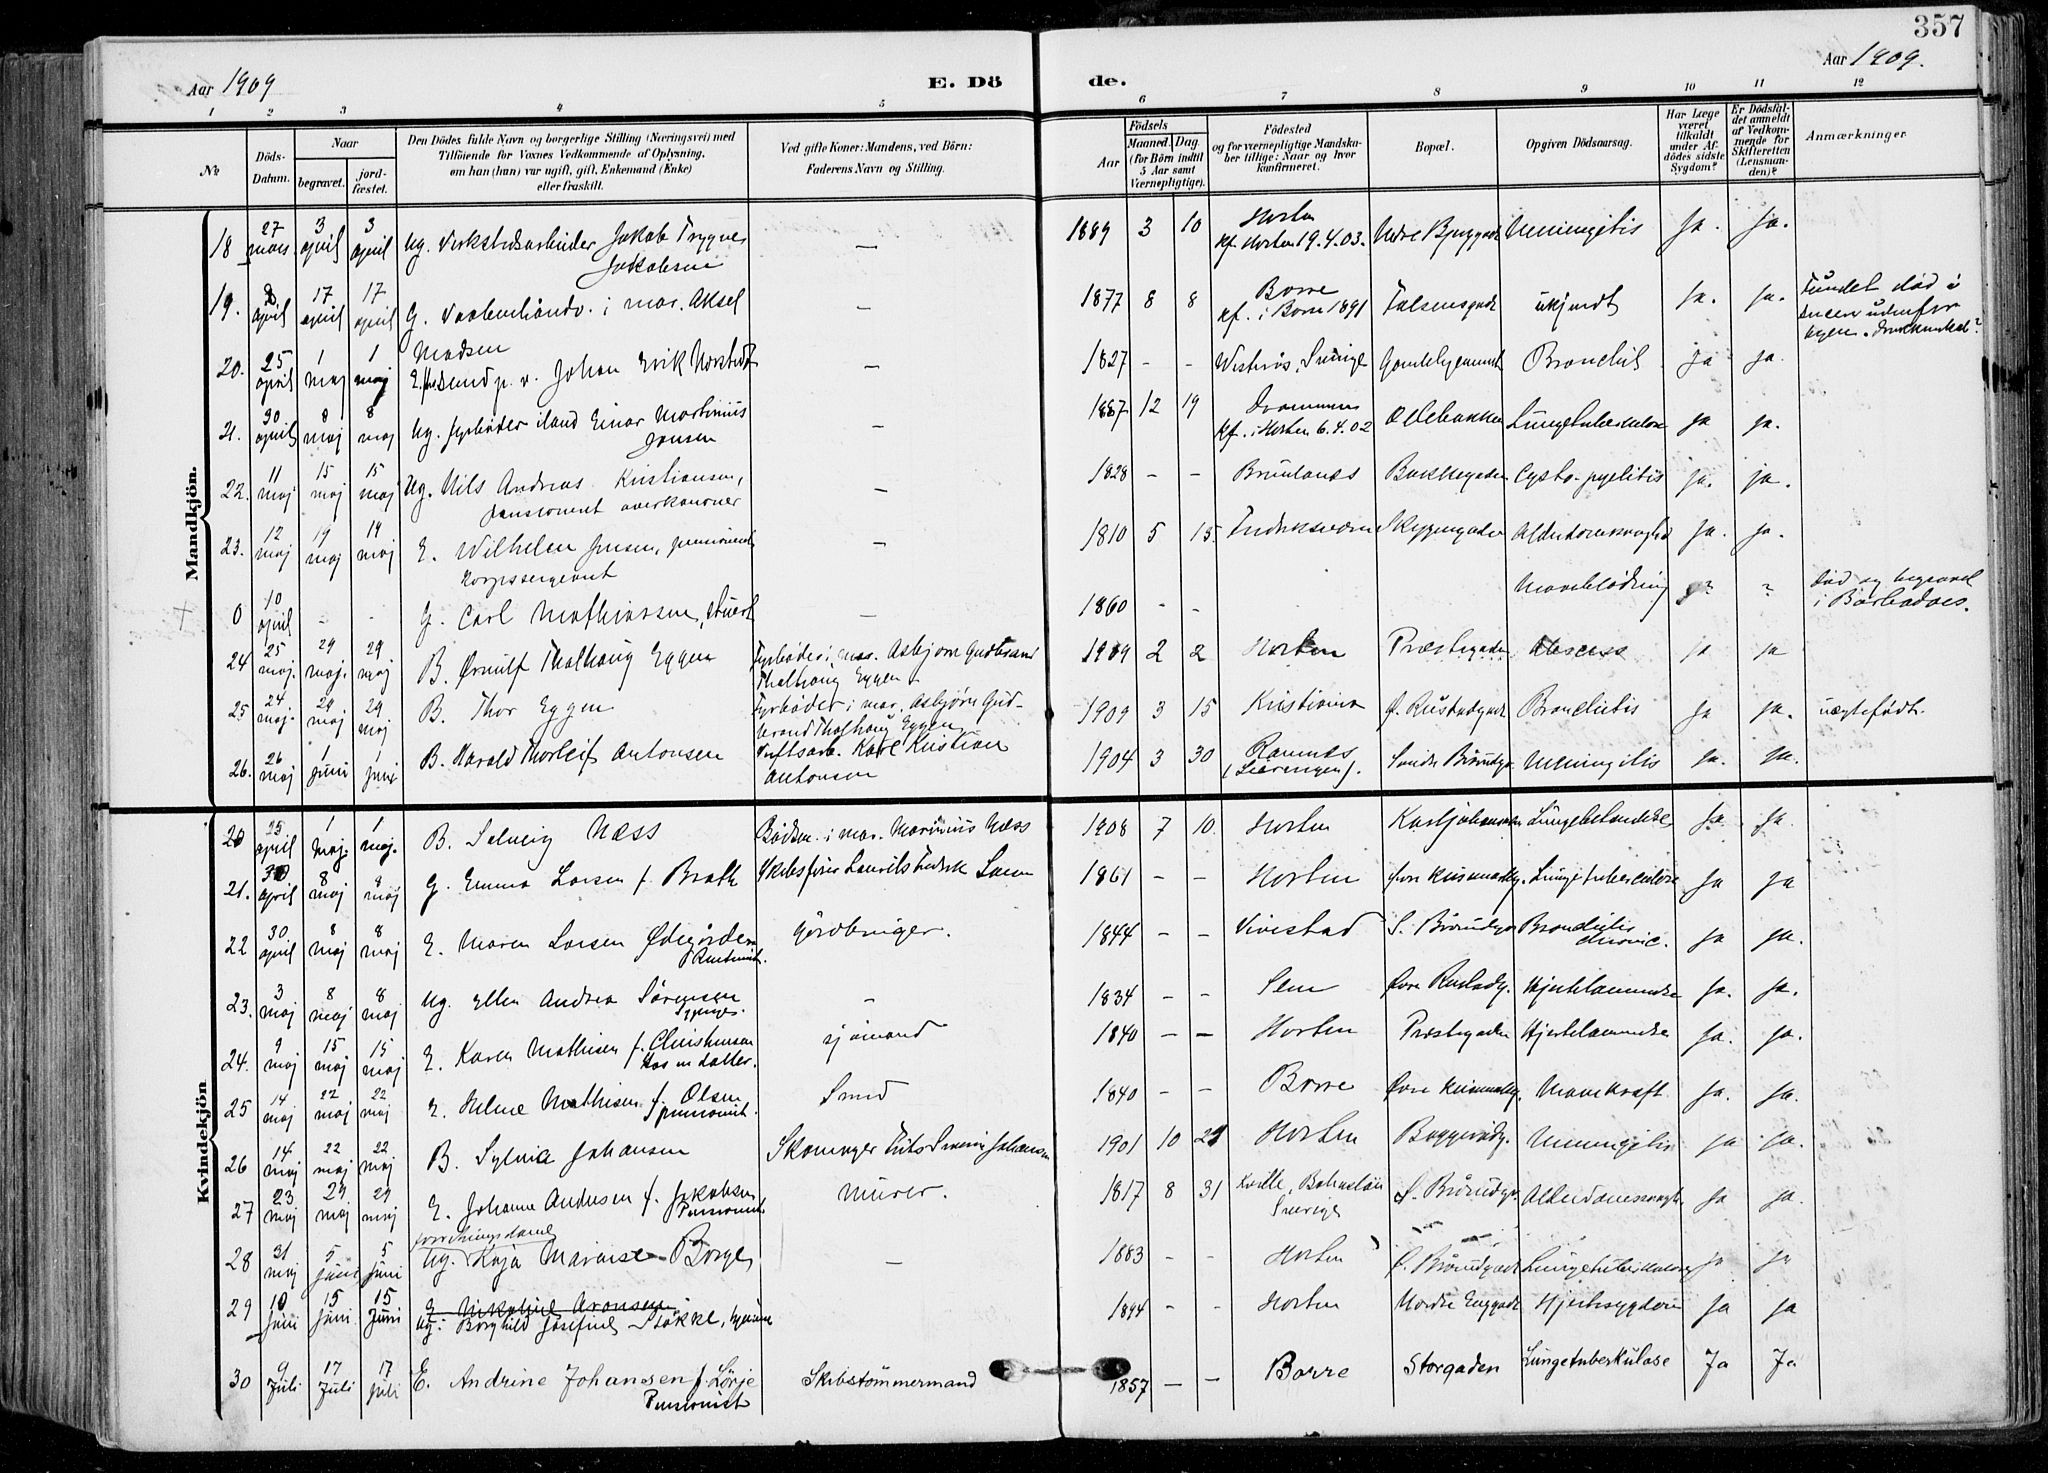 357
Aar 1909
E. Dö
de.
Aar 1909.
1 2 3 4 5 6 7 8 9 10 11 12
No
Döds-Datum.
Naar
begravet.
jord-fæstet.
Den Dödes fulde Navn og borgerlige Stilling (Næringsvei) med
Tilföiende for Voxnes Vedkommende af Oplysning,
om han (hun) var ugift, gift, Enkemand (Enke)
eller fraskilt.
Ved gifte Koner: Mandens, ved Börn:
Faderens Navn og Stilling.
Födsels
Aar
Maaned.
Dag.
(for Börn indtil
5 Aar samt
Værnepligtige).
Födested
og for værnepligtige Mandska-
ber tillige: Naar og hvor
konfirmeret.
Bopæl.
Opgiven Dödsaarsag.
Har Læge
været
tilkaldt
under Af-
dödes sidste
Sygdom?
Er Dödsfal-
det anmeldt
af Vedkom-
mende for
Skifteretten
(Lensman-
den)?
Anmærkninger
Mandkjön.
18 27 mars. 3 april 3 april Ug. Verkstedsarbeider Jakob Trygve — 1889 3 10 Horten Nedre Meningitis Ja. Ja.
Jakobsen kf. Horten 19.4.03.
19. april 17 april 17 april G. i mar. Aksel — 1877 8 8 Borre Falsensgade ukjendt Ja. Ja. Fundet död i
Madsen kf. i Borre 1891
20. 25 april 1 maj 1 maj E. Johan Erik — 1827 - - Sverige Bronchit ja ja.
21. 30 april 8 maj 8 maj Ug. fyrböder iland Einar Martinius — 1887 12 19 Drammen Ollebakken Lungetuberkulose ja ja.
Jansen kf. i Horten 6.4.02
22. 11 maj 15 maj 15 maj Ug. Nils Andreas Kristiansen, — 1828 - - Brunlanes Bakkegaden Cysto-pyelitis ja. ja.
pensioneret overkanoner
23. 12 maj 19 maj 19 maj E. Wilhelm Jensen, pensioneret — 1810 5 15. Fredriksværn Skyggegaden Alderdomssvaghed ja. ja.
korpssergeant
0 10 april - - G. Carl Mathiassen, stuert — 1860 - - Maveblödning ? ? Död og begravet
i Barbadoes.
24 25 maj. 29 maj. 29 maj B. Ørnulf Thalhaug Eggen Fyrböder i mar. Asbjørn Gudbrand 1909 2 2 Horten Præstegaden Abscess ja ja
Thalhaug Eggen
25 24 maj. 29 maj 29 maj B. Thor Eggen Fyrböder i mar. Asbjørn Gud- 1909 3 15 Kristiania Ø. Rustadgade Bronchitis ja ja. uægtefödt.
brand Thalhaug Eggen
26. 26 maj 1 juni 1 juni B. Harald Thorleif Antonsen Karl Kristian 1904 3 30 Ramnes Söndre Brårudg. Meningitis ja. ja.
Antonsen
Kvindekjön
20 25 april 1 maj. 1 maj. B. Solveig Næss Bådsm. i mar. Marinius Næss 1908 7 10. Horten Karljohansvern Lungebetændelse ja. ja.
21. 30 april 8 maj 8 maj G. Emma Larsen f. Brath Skibsförer Laurits Fredrik Larsen 1861 - - Horten Lungetuberculose ja ja
22 30 april 8 maj 8 maj E. Maren Larsen Ødegården Gårdbruger. 1844 - - Vivestad S. Brårudg. Bronchitis ja ja.
chronic.
23. 3 maj 8 maj 8 maj Ug. Ellen Andrea Sörensen - 1834 - - Sem Øvre Rustadg. Hjertelammelse ja. ja.
24. 9 maj 15 maj 15 maj E. Karen Mathisen f. Christensen sjömand 1840 - - Horten Præstegaden Hjertelammelse ja. ja.
Hos en datter.
25 14 maj 22 maj 22 maj E. Helene Mathisen f. Olsen Smed 1840 - - Borre Mavekræft. ja. ja.
pensionist.
26 14 maj 22 maj 22 maj B. Sylvia Johansen Skomager Johansen 1901 10 Horten Meningitis ja ja.
27 23 maj 29 maj 29 maj E. Johanne Andersen f. Jakobsen Murer. 1817 8 31 Kville, Bohuslän S. Brårudg. Alderdomssvaghed ja ja.
Pensionist Sverige
28 31 maj 5 juni 5 juni forretningsdame
Ug. Kaja Mararise Borge — 1883 - - Horten Ø. Brårudgade Lungetuberkulose ja ja
29 10 juni 15 juni 15 juni E Nikoline Aronsen 1894 - - Horten Nordre Enggade Hjertesygdom ja ja
Ug: Borghild Josefine Stökke,
30 9 Juli 17 Juli 17 juli E. Andrine Johansen f. Lörje Skibstömmermand 1857 - - Borre Storgaden Lungetuberkulose Ja Ja
Pensionist